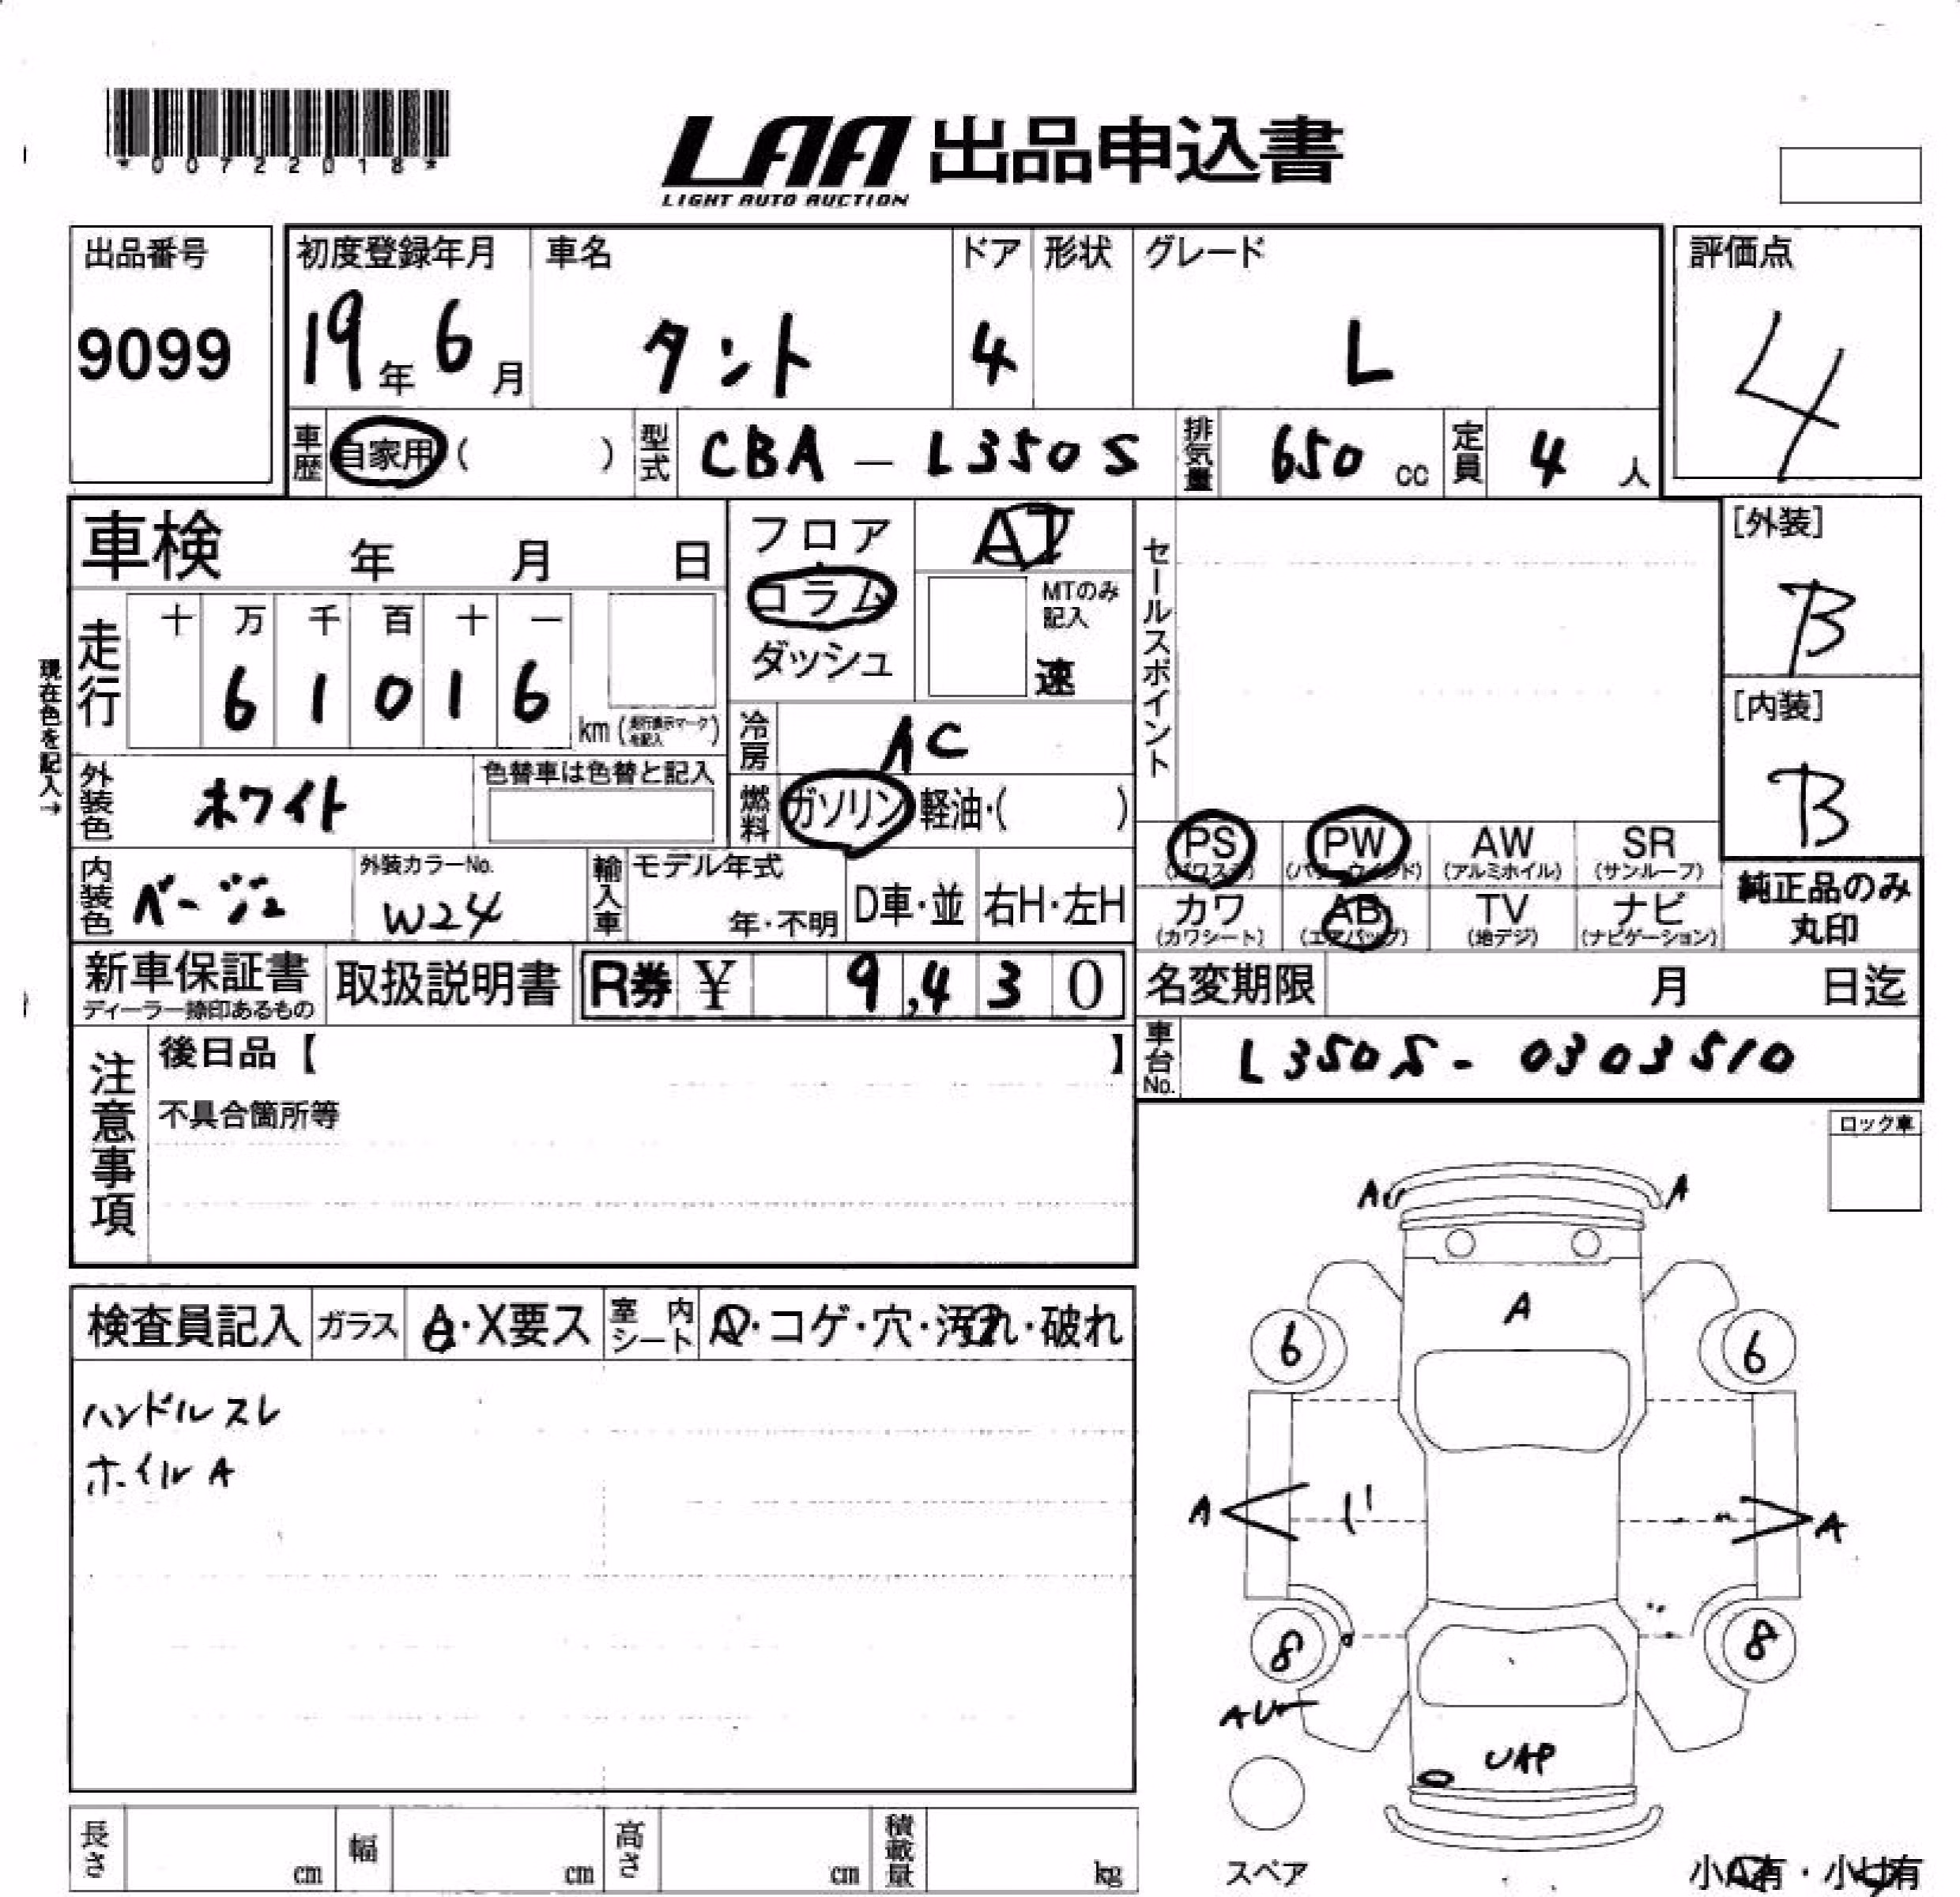 *00722018*
LAA 出品申込書
LIGHT AUTO AUCTION
出品番号
9099
初度登録年月
19年 6月
車名
タント
ドア
4
形状
グレード
L
評価点
4
車歴 自家用 ( )
型式 CBA - L350S
排気量 650 cc
定員 4 人
車検 年 月 日
走行
十 万 千 百 十 一
6 1 0 1 6
km (走行表示マークを記入)
現在色を記入→
フロア
コラム
ダッシュ
AT
MTのみ記入
速
冷房 AC
燃料 ガソリン 軽油・( )
セールスポイント
[外装]
B
[内装]
B
外装色 ホワイト
色替車は色替と記入
内装色 ベージュ
外装カラーNo.
W24
輸入車
モデル年式
年・不明
D車・並
右H・左H
PS (パワステ)
PW (パワーウインド)
AW (アルミホイル)
SR (サンルーフ)
カワ (カワシート)
AB (エアバッグ)
TV (地デジ)
ナビ (ナビゲーション)
純正品のみ
丸印
新車保証書
ディーラー捺印あるもの
取扱説明書
R券 ¥ 9,430
名変期限 月 日迄
車台No. L350S - 0303510
注意事項
後日品【 】
不具合箇所等
ロック車
検査員記入
ガラス
A・X要ス
室内シート
・コゲ・穴・汚れ・破れ
ハンドルスレ
ホイルA
A
A
A
6
6
A
A
8
8
AU
UAP
スペア
長さ cm
幅 cm
高さ cm
積載量 kg
小A有・小U有